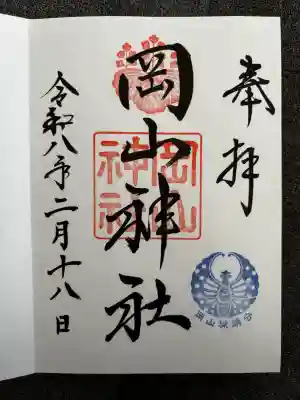 奉拝
岡山神社
岡山神社
令和八年二月十八日
岡山城鎮守